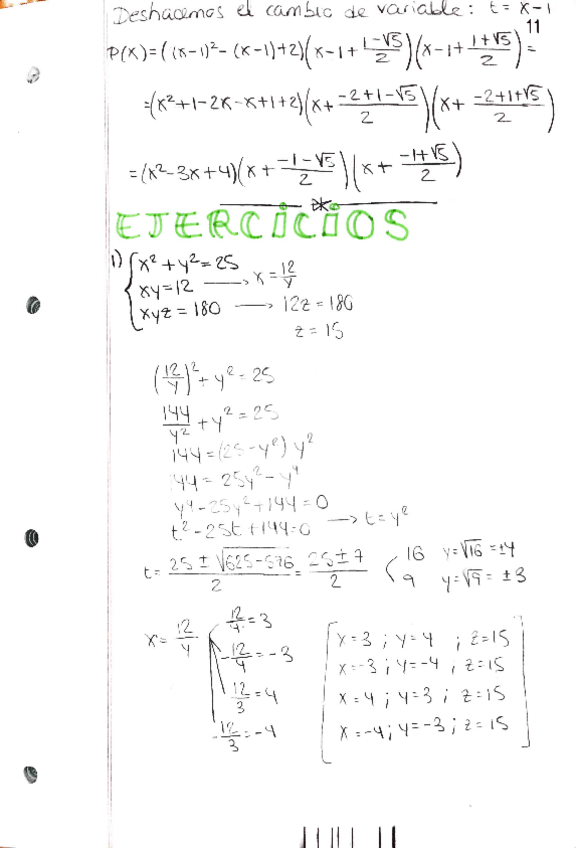 Deshacemos el cambio de variable: t = x-1
11
P(x)=((x-1)²-(x-1)+2)(x-1+\frac{1-√5}{2})(x-1+\frac{1+√5}{2})=
=(x²+1-2x-x+1+2)(x+\frac{-2+1-√5}{2})(x+\frac{-2+1+√5}{2})
=(x²-3x+4)(x+\frac{-1-√5}{2})(x+\frac{-1+√5}{2})
EJERCICIOS
1) { x²+y²=25
xy=12 → x=\frac{12}{y}
xyz=180 → 12z=180
z=15
(\frac{12}{y})²+y²=25
\frac{144}{y²}+y²=25
144=(25-y²)y²
144=25y²-y⁴
y⁴-25y²+144=0
t²-25t+144=0 → t=y²
t=\frac{25±√625-576}{2}=\frac{25±7}{2} < 16 y=√16=±4
9 y=√9=±3
x=\frac{12}{y} \frac{12}{4}=3
-\frac{12}{4}=-3
\frac{12}{3}=4
-\frac{12}{3}=-4
x=3 ; y=4 ; z=15
x=-3 ; y=-4 , z=15
x=4 ; y=3 ; z=15
x=-4 ; y=-3 ; z=15